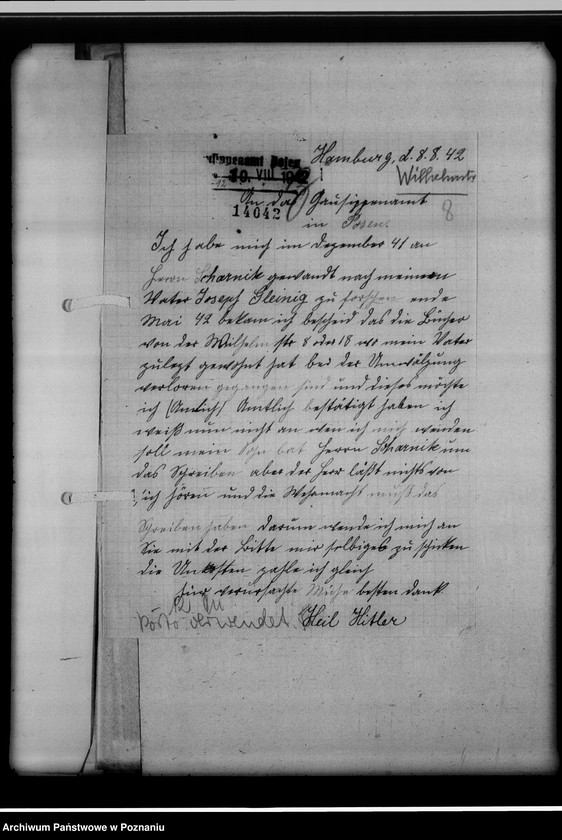 Hamburg, d. 8.8.42
Gausippenamt Posen
10. VIII. 1942
14042
8
An das Gausippenamt
in Posen.
Ich habe mich im Dezember 41 an
Herrn Scharnik gewandt nach meinem
Vater Josef Gleinig zu forschen ende
Mai 42 bekam ich bescheid das die Bücher
von der Wilhelm str 8 oder 18 wo mein Vater
zulezt gewohnt hat bei der Umwälzung
verloren gegangen sind und dieses möchte
ich (Amlich) Amtlich bestätigt haben ich
weiß nun nicht an wen ich mich wenden
soll mein Sohn bat Herrn Scharnik um
das Schreiben aber der Herr läßt nichts von
sich hören und die Wehrmacht muß das
Schreiben haben darum wende ich mich an
Sie mit der Bitte mir selbiges zu schicken
die Unkosten zahle ich gleich
für verursachte Mühe besten dank
12
Porto verwendet.
Heil Hitler
Archiwum Państwowe w Poznaniu